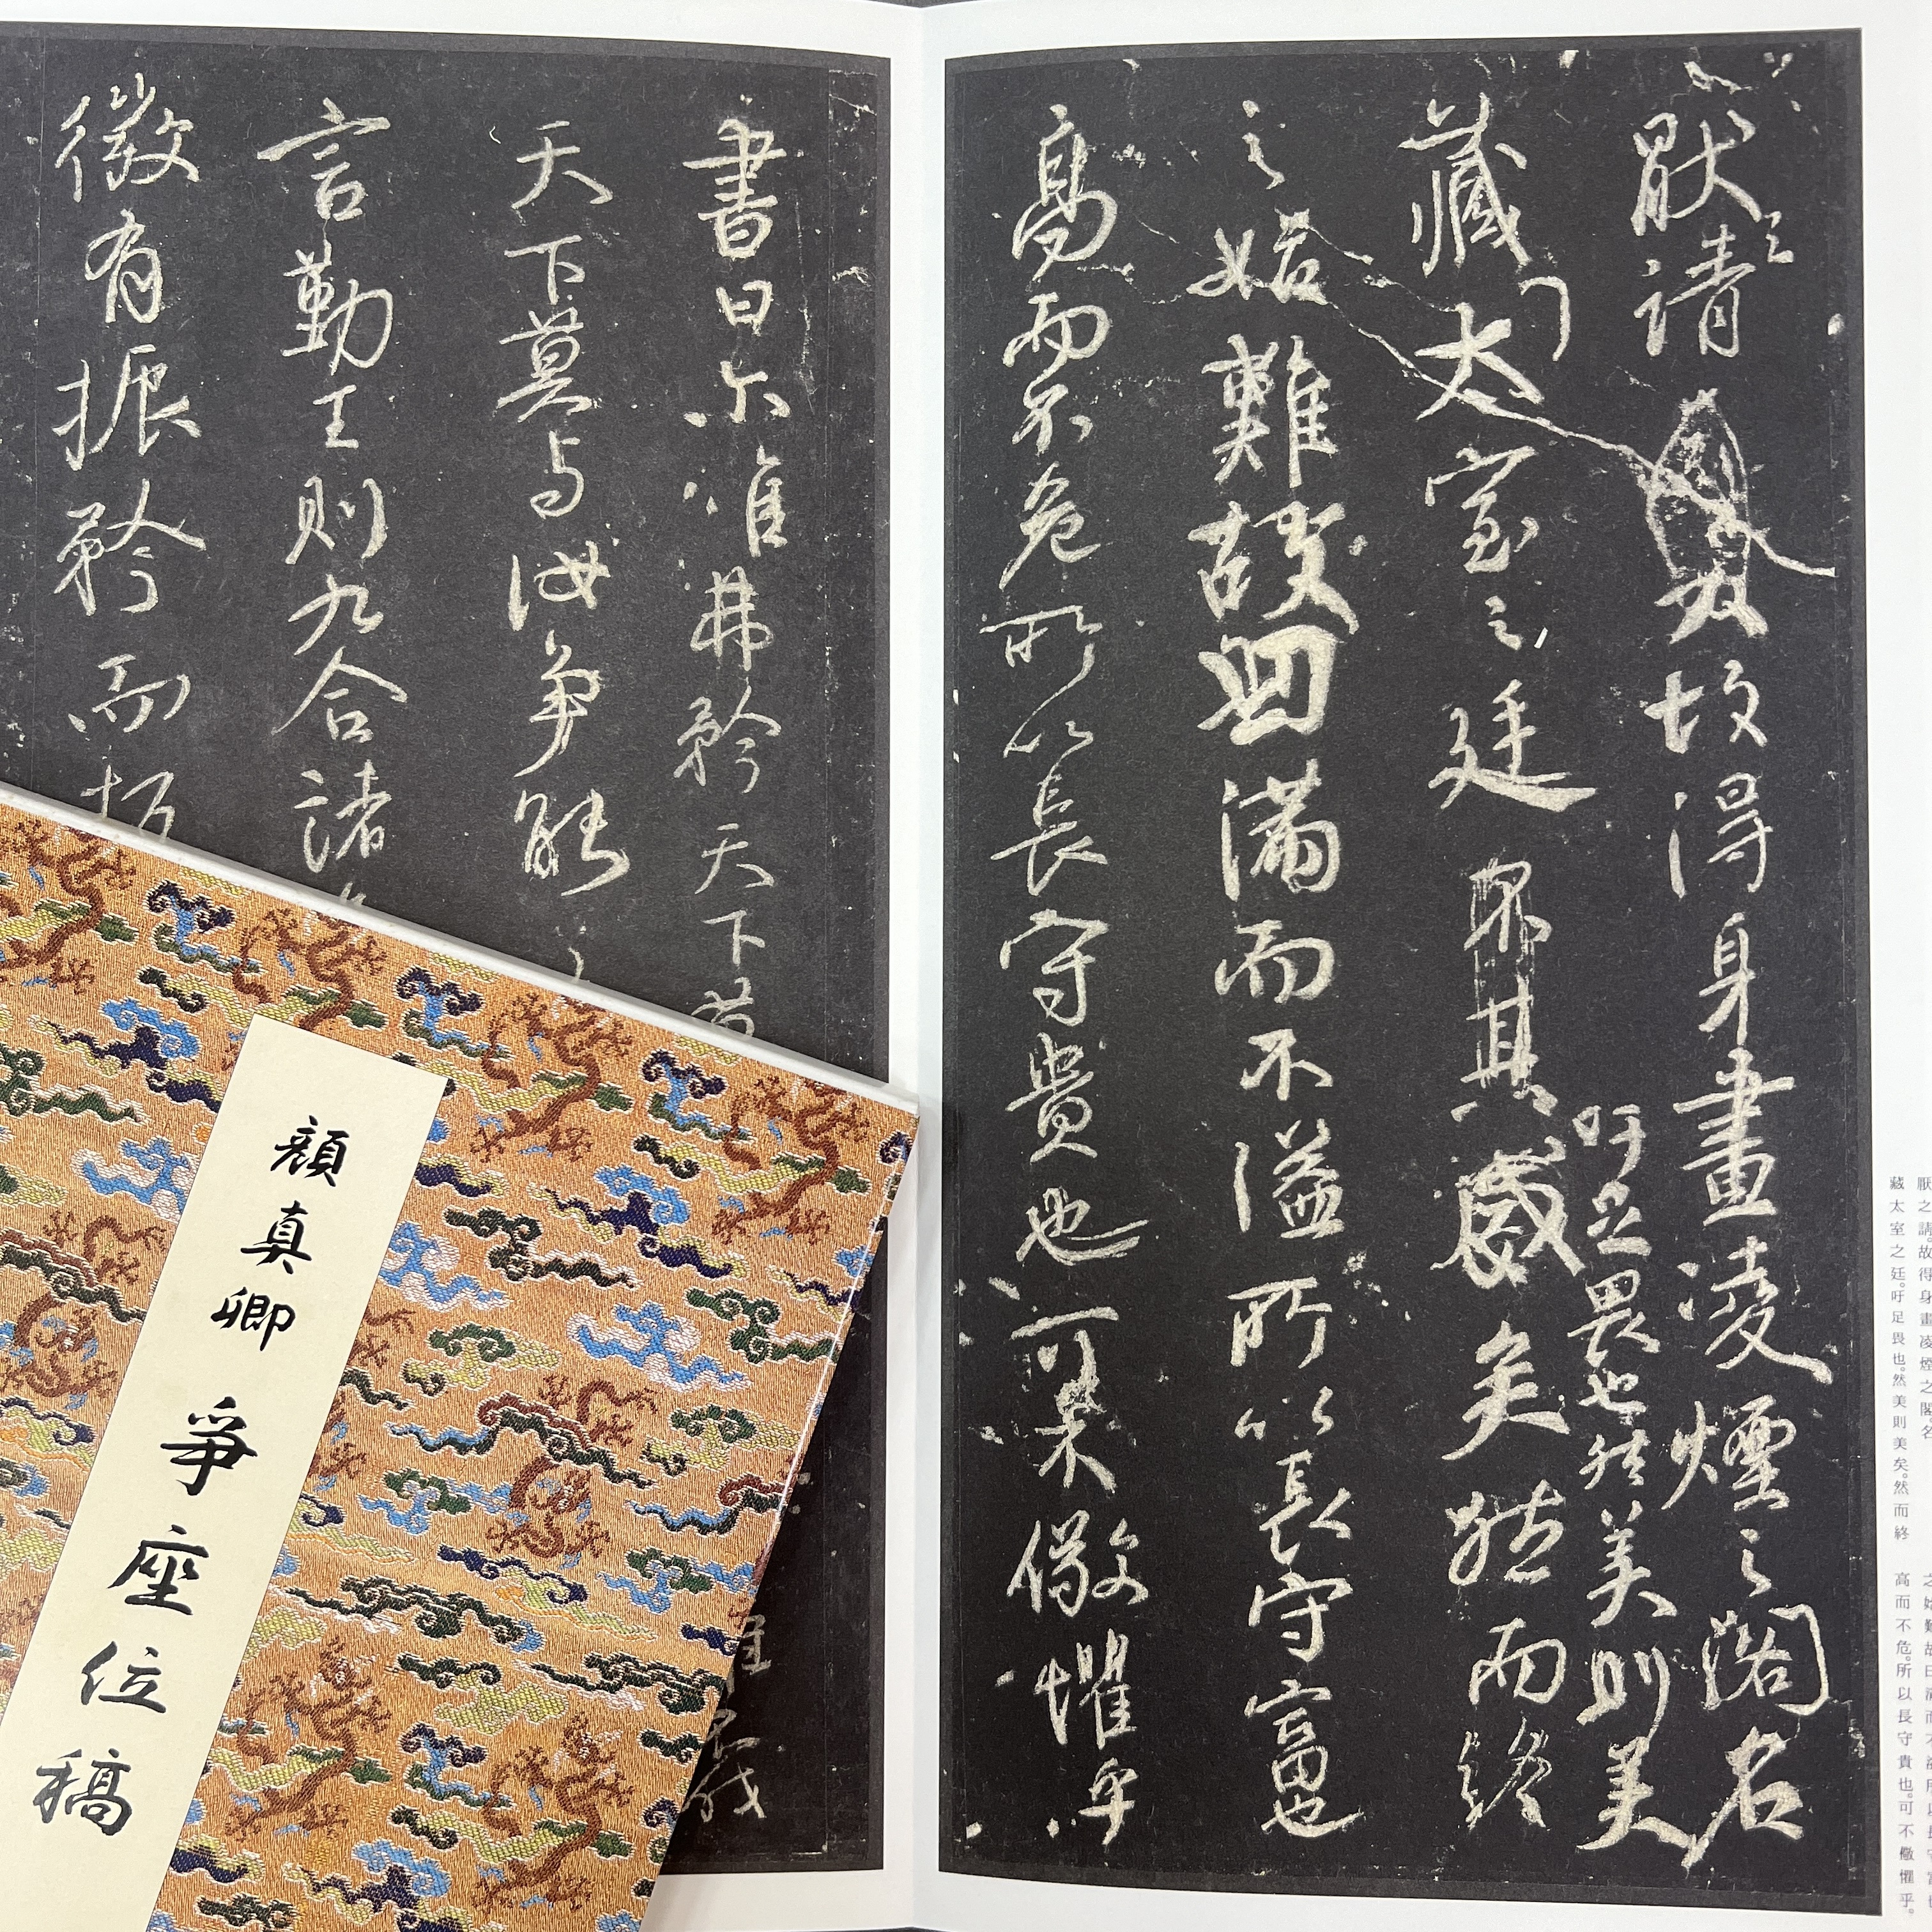 厭之請故得身畫凌煙之閣名
藏太室之廷
吁足畏也然美則美
矣然而終
之始難故曰滿而不溢所以長守富也
高而不危所以長守貴也可不儆懼乎
書曰尒唯弗矜天下莫
天下莫與汝爭能
言勤王則九合諸
徵有振矜而
顏真卿 爭座位稿
厭之請。故得身畫凌煙之閣。名
藏太室之廷。吁足畏也。然美則美矣。然而終
之始難。故曰滿而不溢。所以長守富也
高而不危。所以長守貴也。可不儆懼乎。